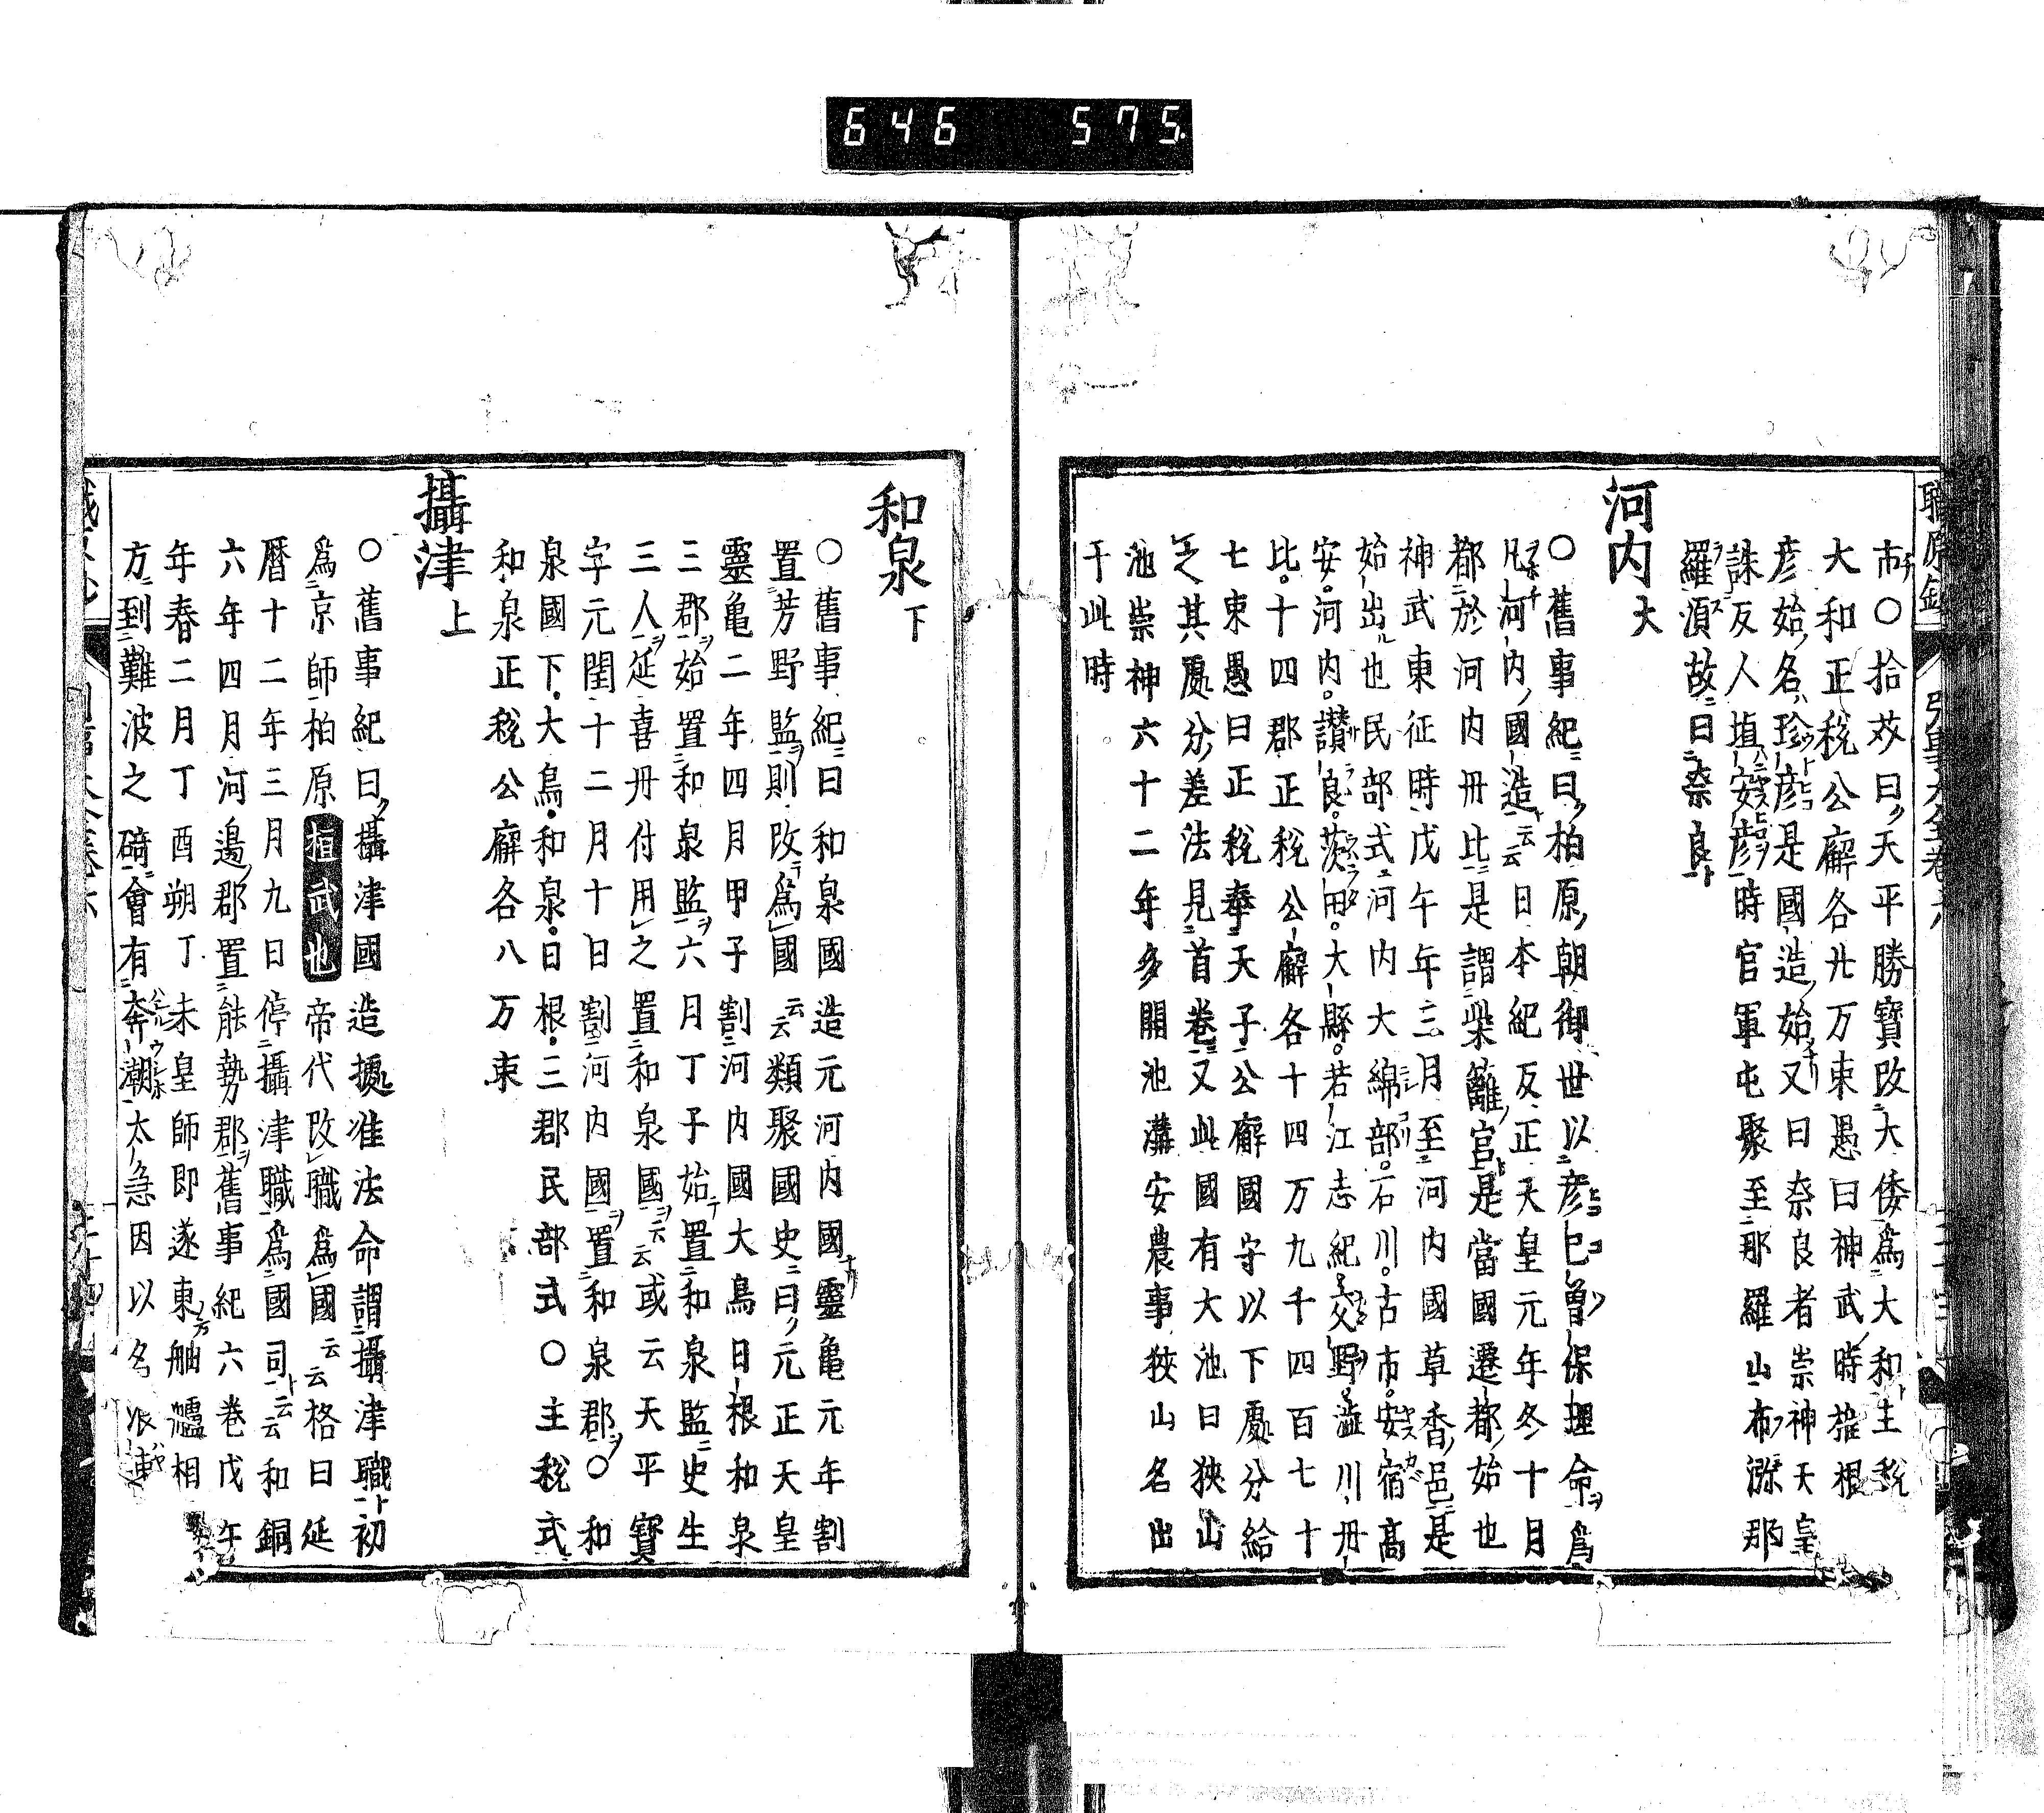 646 575
職原鈔
市〇拾芥曰天平勝寶改大倭爲大和主稅
大和正稅公廨各廿万束愚曰神武時椎根
彦始名珍彦是國造始又曰奈良者崇神天皇
誅反人埴安彦時官軍屯聚至那羅山布漲那
羅湏故曰奈良
河内大
〇舊事紀曰柏原朝御世以彦已曽保理命爲
凡河内國造云云日本紀反正天皇元年冬十月
都於河内丹比是謂柴籬宮是當國遷都始也
神武東征時戊午年三月至河内國草香邑是
始出也民部式河内大綿部石川古市安宿高
安河内讃良茨田大縣若江志紀交野澁川丹
比十四郡正稅公廨各十四万九千四百七十
七束愚曰正稅奉天子公廨國守以下處分給
之其處分差法見首巻又此國有大池曰狹山
池崇神六十二年多開池溝安農事狹山名出
于此時
和泉下
〇舊事紀曰和泉國造元河内國靈亀元年割
置芳野監則改爲國云云類聚國史曰元正天皇
靈亀二年四月甲子割河内國大鳥日根和泉
三郡始置和泉監六月丁子始置和泉監史生
三人延喜丹付用之置和泉國云云或云天平寶
字元閏十二月十日割河内國置和泉郡〇和
泉國下大鳥和泉日根三郡民部式〇主稅式
和泉正稅公廨各八万束
攝津上
〇舊事紀曰攝津國造擾准法命謂攝津職初
爲京師柏原桓武也帝代改職爲國云云格曰延
暦十二年三月九日停攝津職爲國司云云和銅
六年四月河邉郡置能勢郡舊事紀六巻戊午
年春二月丁酉朔丁未皇師即遂東舳艫相
方到難波之碕會有奔潮太急因以名浪速